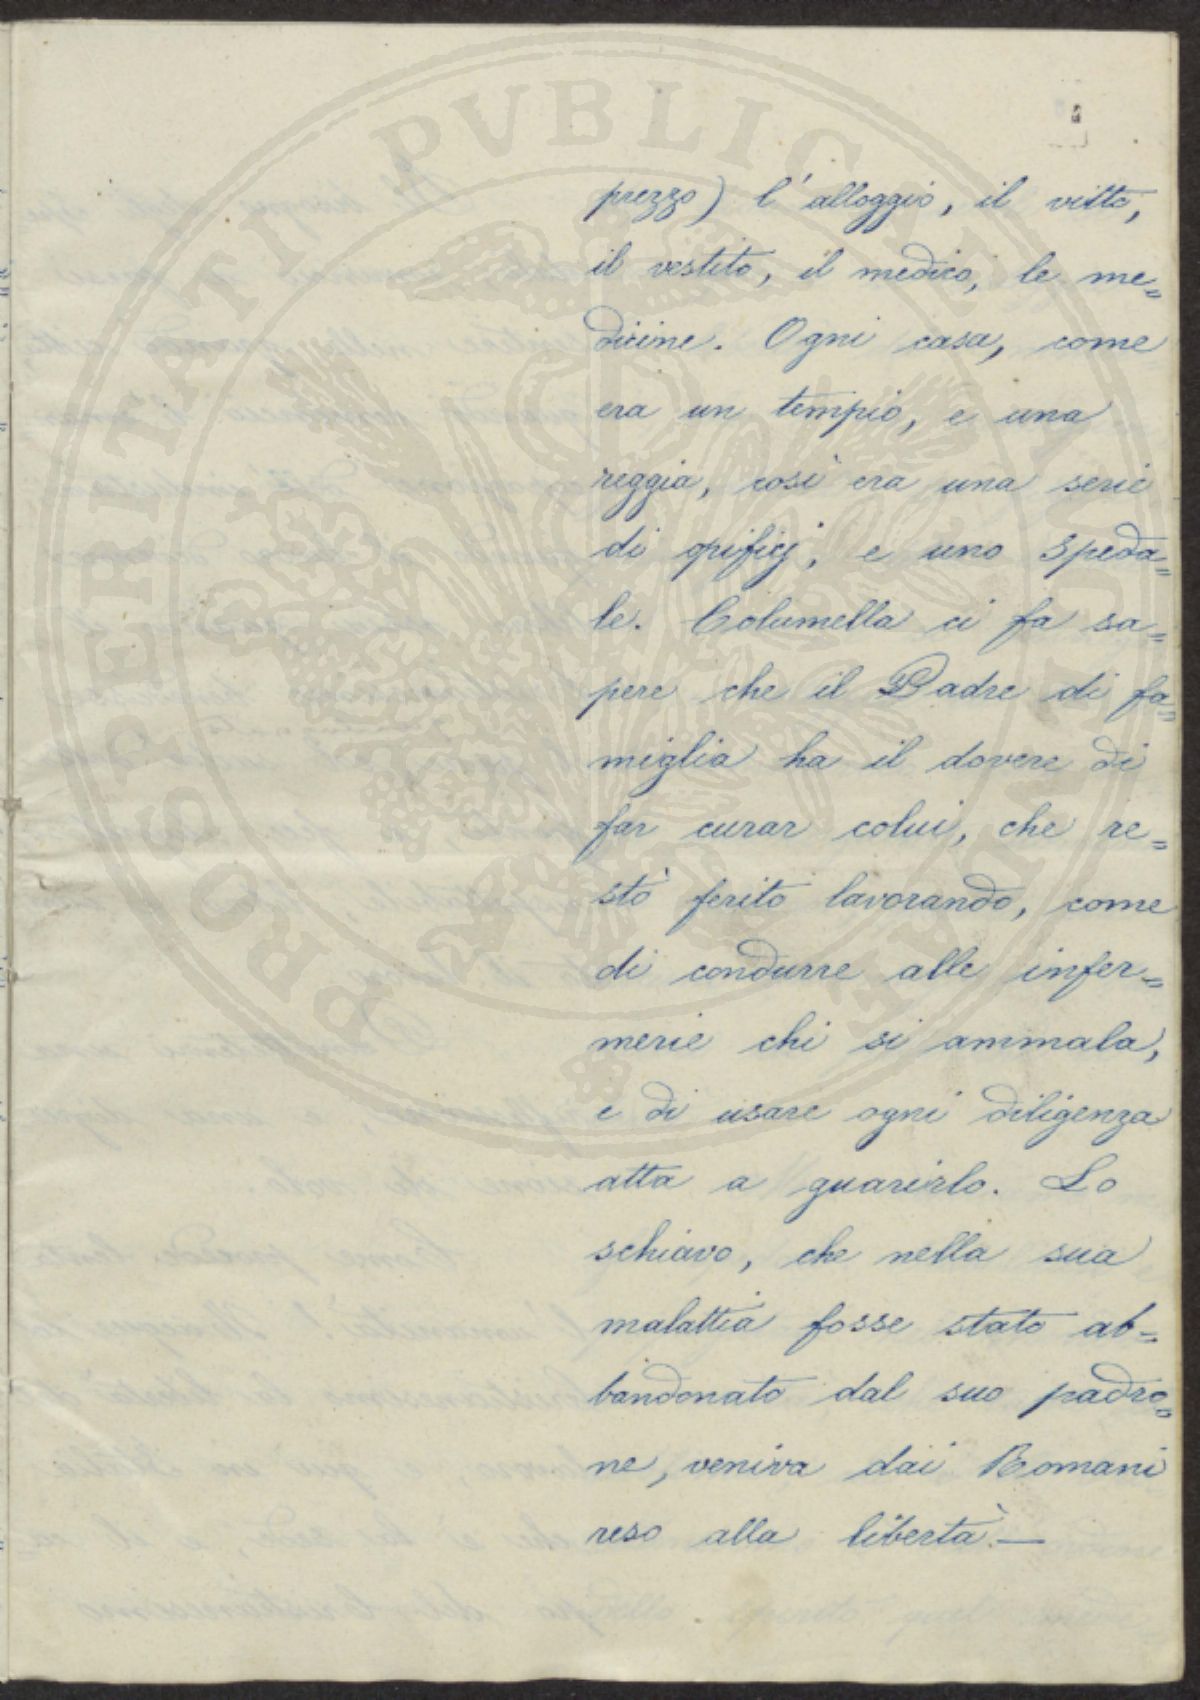 PROSPERITATI PVBLICAE
prezzo) l'alloggio, il vitto,
il vestito, il medico, le me=
dicine. Ogni casa, come
era un tempio, e una
reggia, così era una serie
di opificj, e uno speda=
le. Columella ci fa sa=
pere che il Padre di fa=
miglia ha il dovere di
far curar colui, che re=
stò ferito lavorando, come
di condurre alle infer=
merie chi si ammala,
e di usare ogni diligenza
atta a guarirlo. Lo
schiavo, che nella sua
malattia fosse stato ab=
bandonato dal suo padro=
ne, veniva dai Romani
reso alla libertà.—